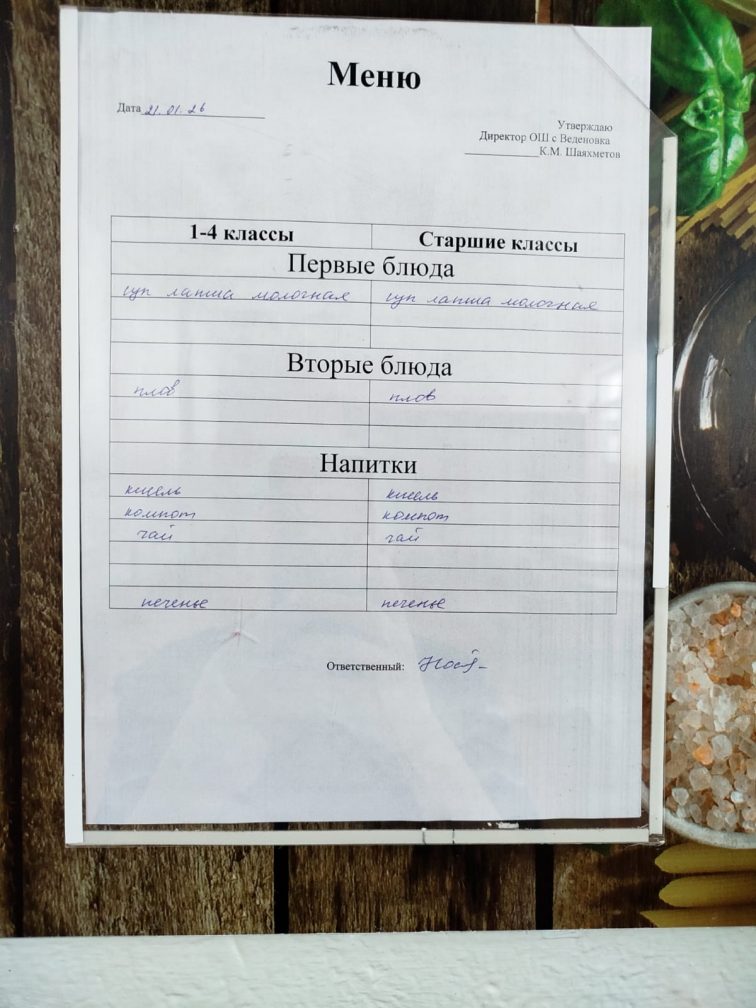 Меню
Дата 21.01.26
Утверждаю
Директор ОШ с Веденовка
____________К.М. Шаяхметов
1-4 классы Старшие классы
Первые блюда
суп лапша молочная суп лапша молочная
Вторые блюда
плов плов
Напитки
кисель кисель
компот компот
чай чай
печенье печенье
Ответственный: